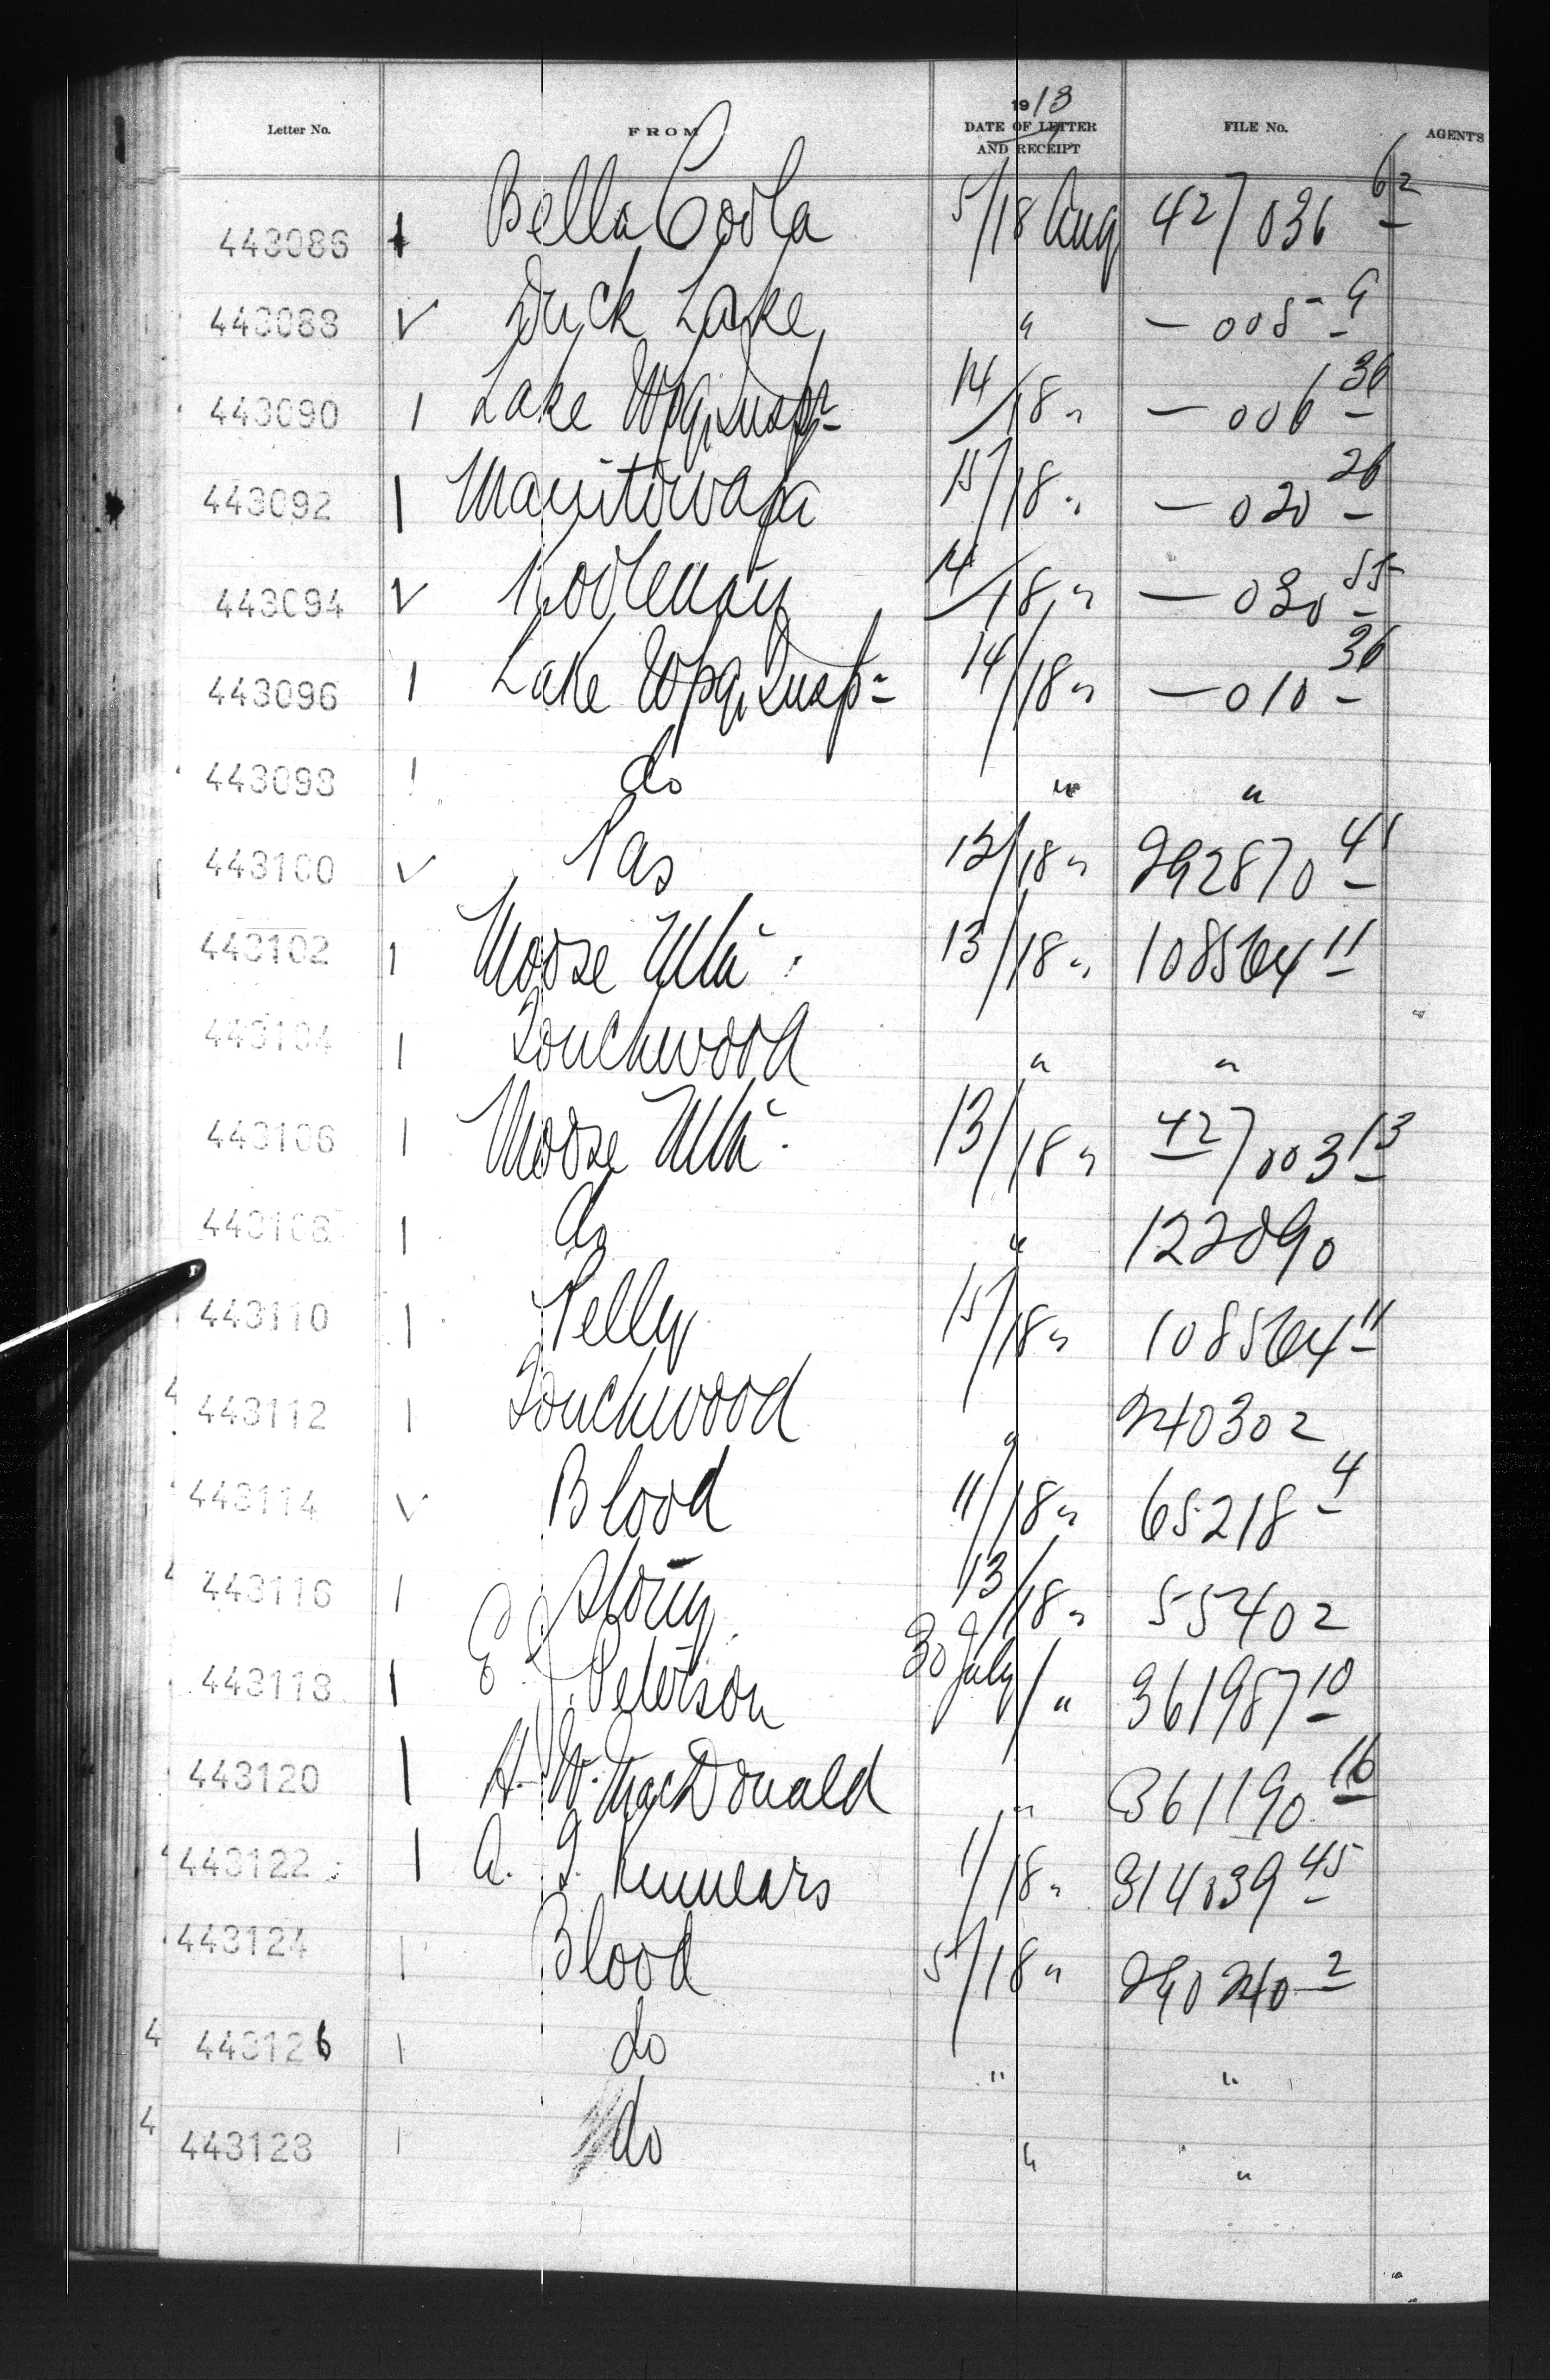 Letter No. FROM 1913 DATE OF LETTER AND RECEIPT FILE No. AGENTS
443086 1 Bella Coola 5/18 Aug 427036 62
443088 ✓ Duck Lake " — 005 9
443090 1 Lake Wpg. Insp. 14/18 " — 006 36
443092 1 Manitowapa 15/18 " — 020 26
443094 ✓ Kootenay 14/18 " — 030 55
443096 1 Lake Wpg. Insp. 14/18 " — 010 36
443098 1 do " "
443100 ✓ Pas 12/18 " 292870 41
443102 1 Moose Mtn. 13/18 " 108564 11
443104 1 Touchwood " "
443106 1 Moose Mtn. 13/18 " 427003 13
443108 1 do " 122090
443110 1 Pelly 15/18 " 108564 11
4 443112 1 Touchwood " 240302
443114 ✓ Blood 11/18 " 65218 4
4 443116 1 Stony 13/18 " 55402
443118 1 E. J. Peterson 30 July/ " 361987 10
443120 1 H. W. MacDonald " 361190 16
443122 1 A. 1/18 " 314039 45
443124 1 Blood 5/18 " 290240 2
4 443126 1 do " "
4 443128 1 do " "